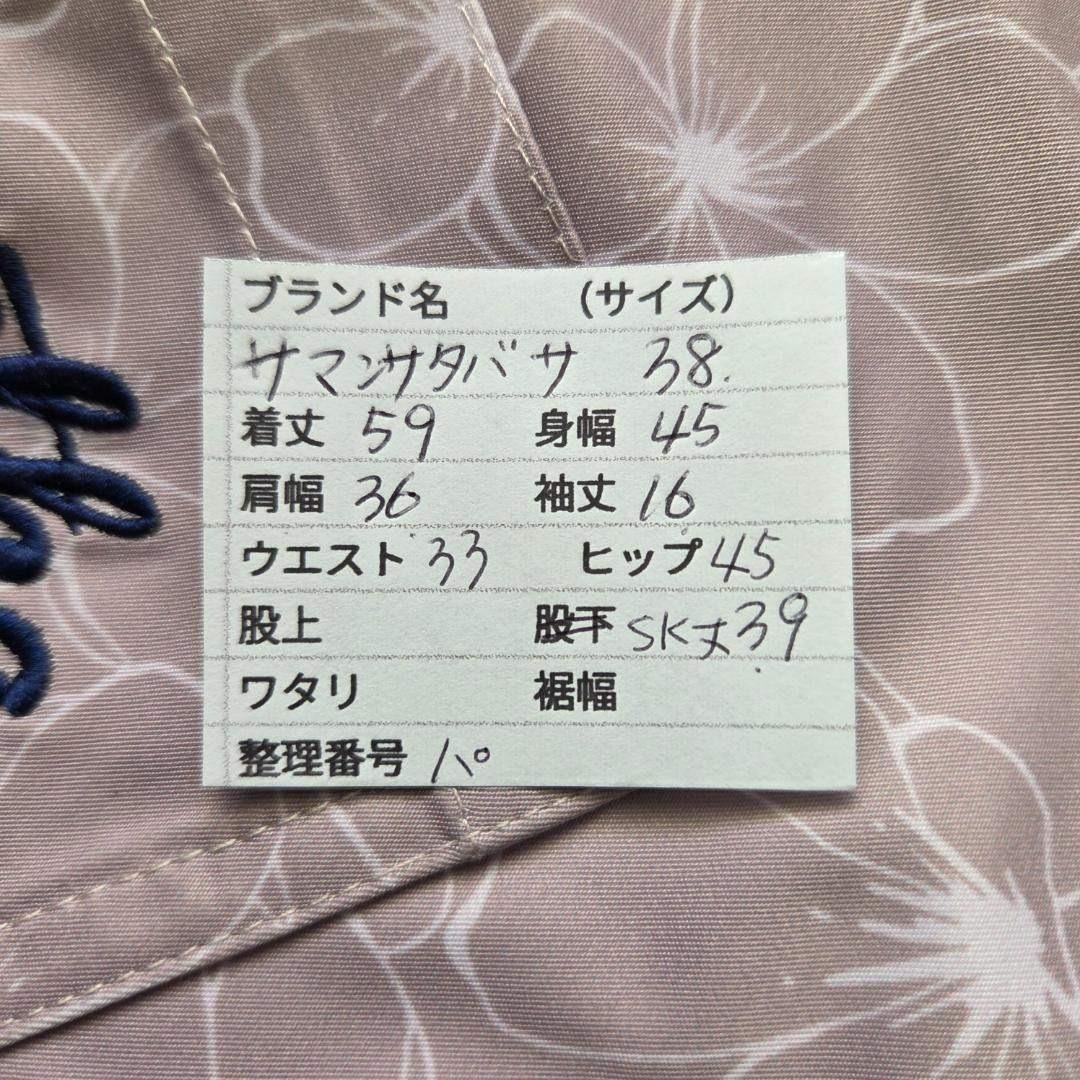 ブランド名 (サイズ)
サマンサタバサ 38.
着丈 59 身幅 45
肩幅 36 袖丈 16
ウエスト 33 ヒップ 45
股上 股下 SK丈39
ワタリ 裾幅
整理番号 パ